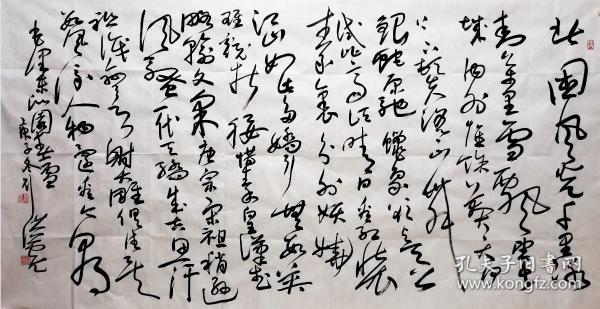 北国风光千里冰
封万里雪飘望长
城内外惟馀莽莽大河
上下顿失滔滔山舞
银蛇原驰蜡象欲与天公
试比高须晴日看红装
素裹分外妖娆
江山如此多娇引无数英
雄竞折腰惜秦皇汉武
略输文采唐宗宋祖稍逊
风骚一代天骄成吉思汗
祗识弯弓射大雕俱往矣
数风流人物还看今朝
毛泽东沁园春雪
庚子冬月
孔夫子旧书网
www.kongfz.com